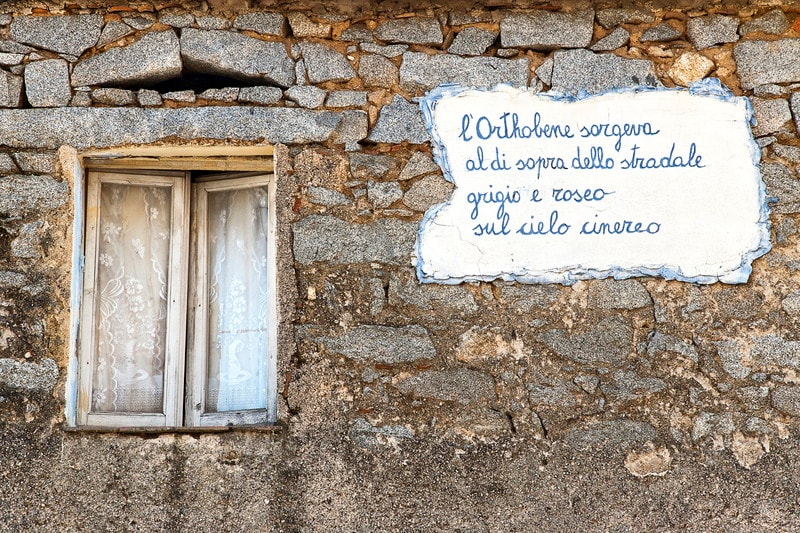 l'Orthobene sorgeva
al di sopra dello stradale
grigio e roseo
sul cielo cinereo